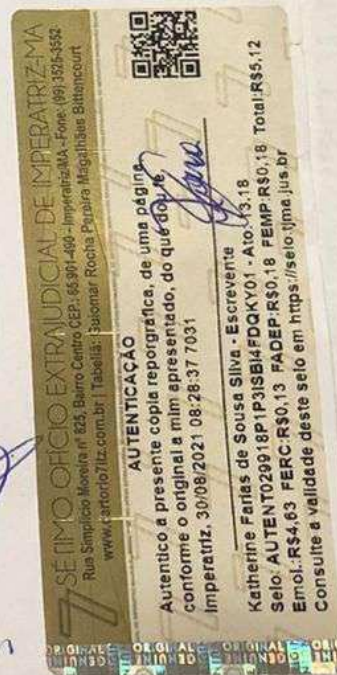 7 SÉTIMO OFÍCIO EXTRAJUDICIAL DE IMPERATRIZ-MA
Rua Simplício Moreira nº 825, Bairro Centro CEP.: 65.901-490 - Imperatriz/MA - Fone: (99) 3525-3552
www.cartorio7itz.com.br | Tabeliã: Suiomar Rocha Pereira Magalhães Bittencourt
AUTENTICAÇÃO
Autentico a presente cópia reporgráfica, de uma página,
conforme o original a mim apresentado, do que dou fé.
Imperatriz, 30/08/2021 08:28:37 7031
Katherine Farias de Sousa Silva - Escrevente
Selo: AUTENT029918P1P3ISBI4FDQKY01 - Ato: 13.18
Emol.:R$4,63 FERC:R$0,13 FADEP:R$0,18 FEMP:R$0,18 Total:R$5,12
Consulte a validade deste selo em https://selo.tjma.jus.br
ORIGINAL ORIGINAL ORIGINAL ORIGINAL
GENUINE GENUINE GENUINE